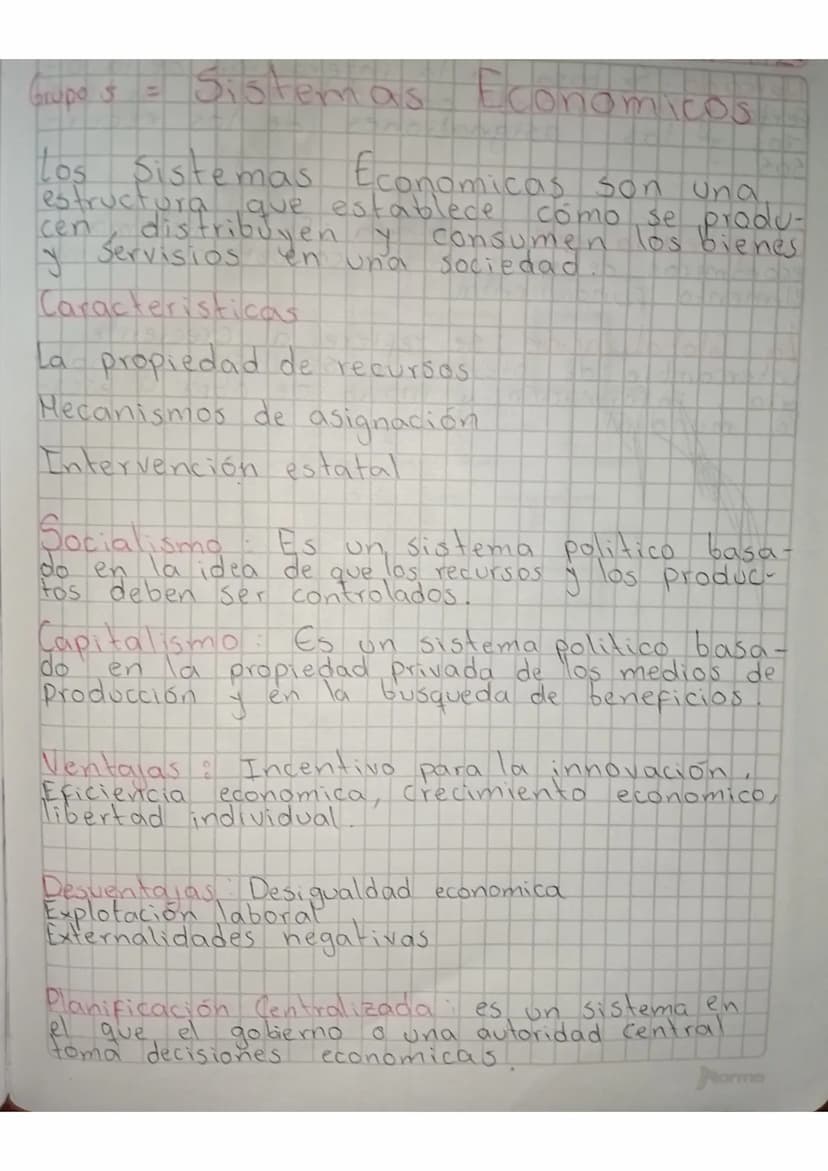 Grupo 5 = Sistemas Economicos
Los Sistemas Economicas son una
estructura que establece cómo se produ-
cen, distribuyen y consumen los bienes
y Servisios en una sociedad.
Caracteristicas
La propiedad de recursos
Mecanismos de asignación
Intervención estatal
Socialismo: Es un sistema politico basa-
do en la idea de que los recursos y los produc-
tos deben ser controlados.
Capitalismo: Es un sistema politico basa-
do en la propiedad privada de los medios de
producción y en la busqueda de beneficios.
Ventajas: Incentivo para la innovación,
Eficiencia economica, crecimiento economico,
libertad individual.
Desventajas: Desigualdad economica
Explotación laboral
Externalidades negativas
Planificación Centralizada: es un sistema en
el que el gobierno o una autoridad central
toma decisiones economicas.
Norma